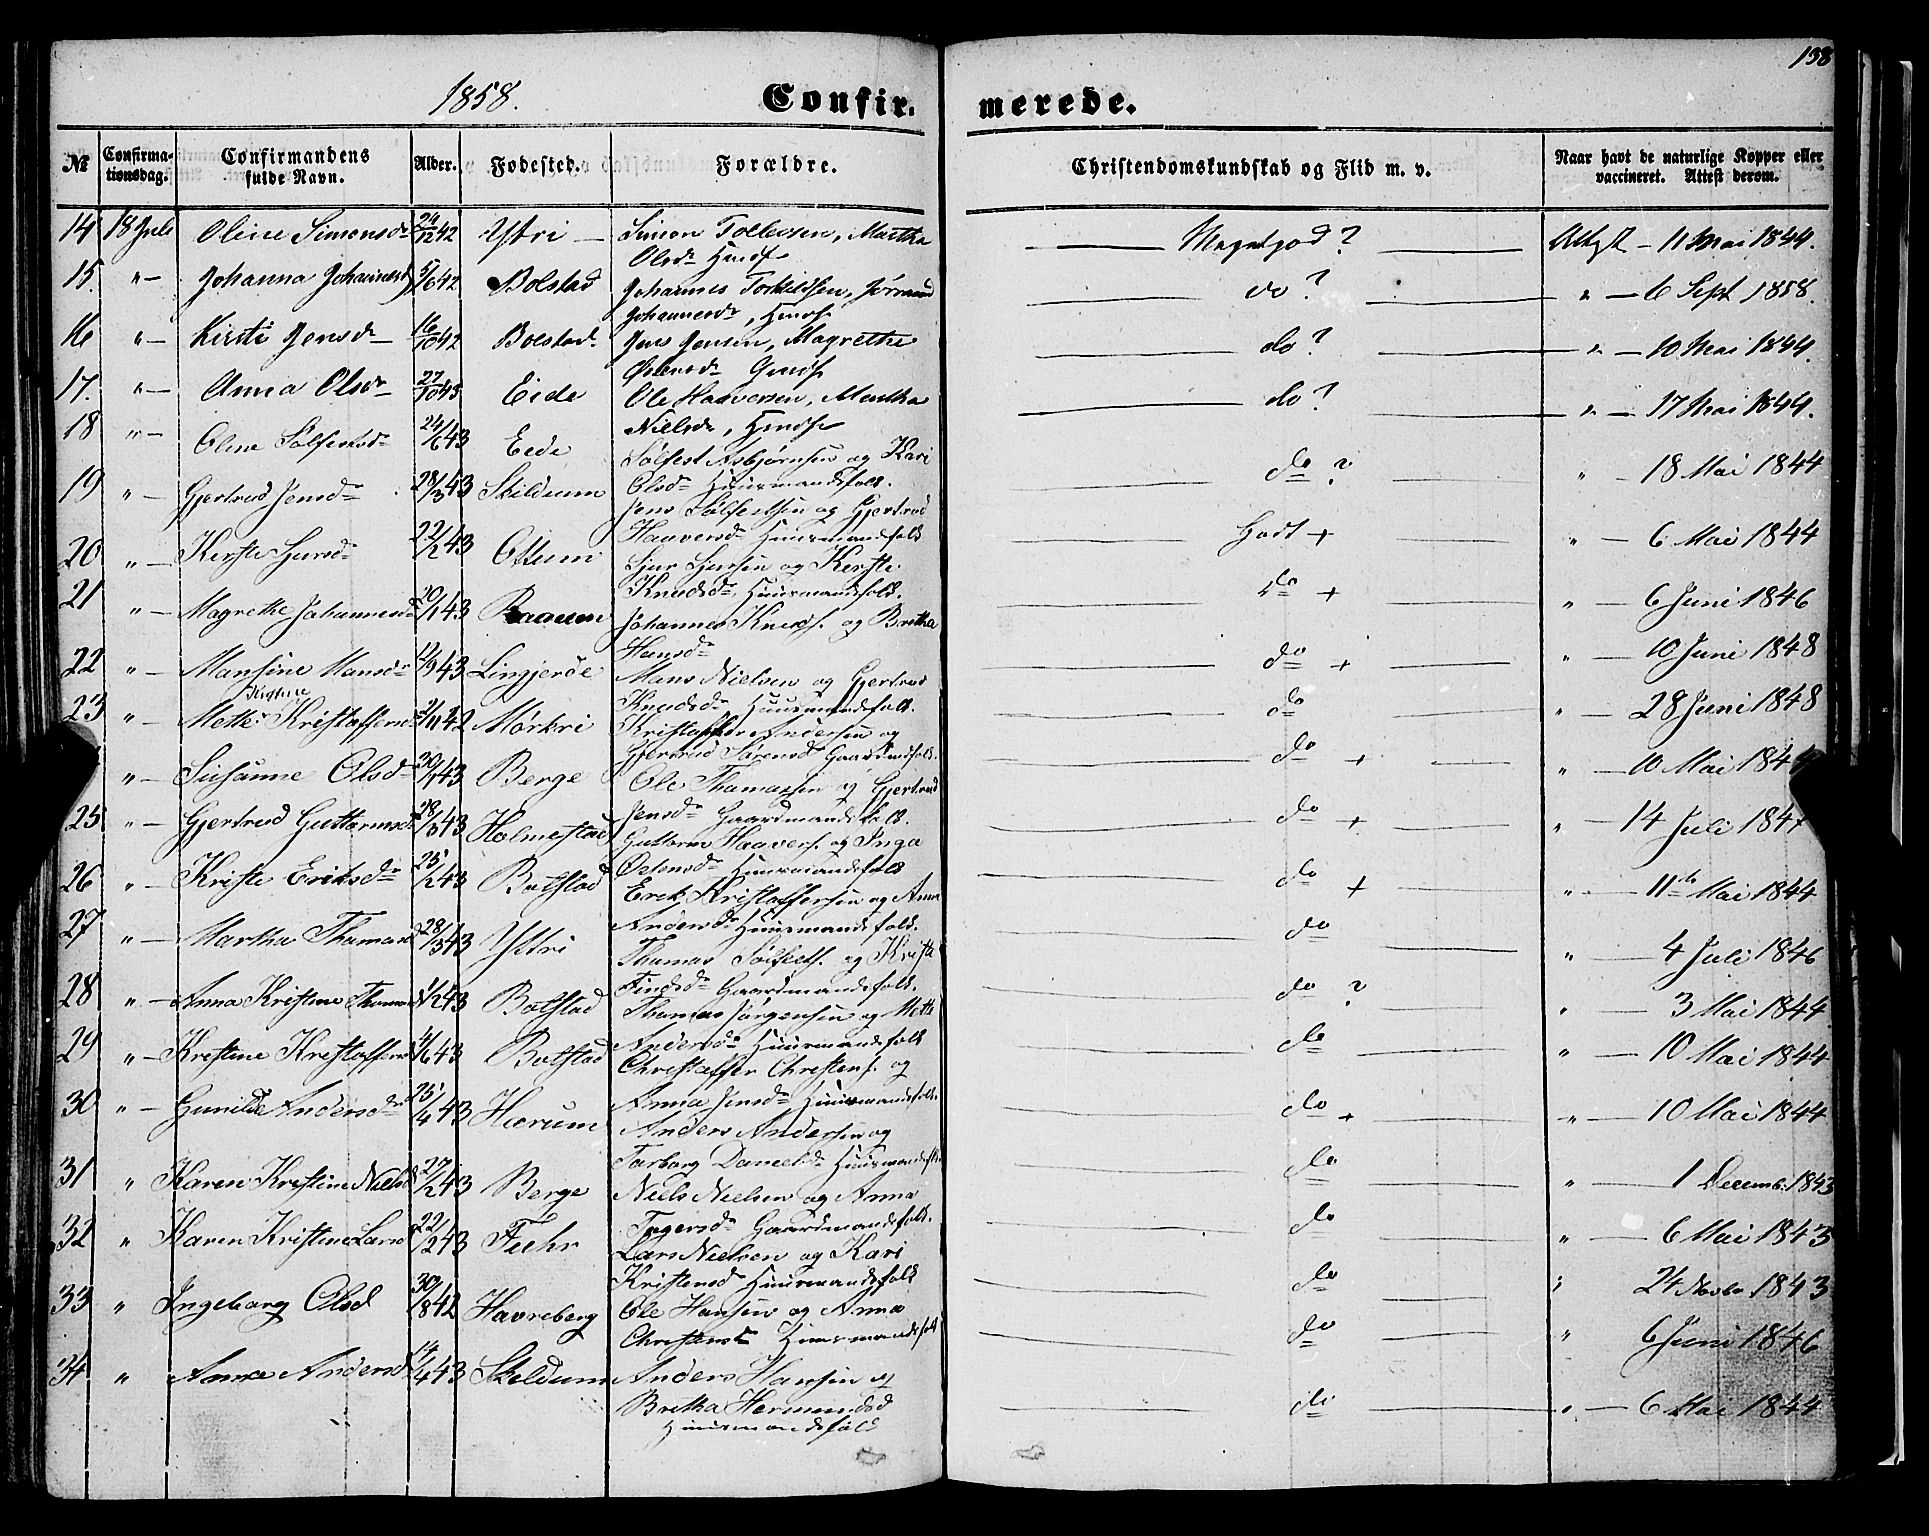 138
1858. Confirmerede.
№ Confirmationsdag. Confirmandens fulde Navn. Alder. Fødested. Forældre. Christendomskundskab og Flid m. v. Naar havt de naturlige Kopper eller vaccineret. Attest derom.
14 18 Juli Oline Simonsdr 24/12 42 Yttri — Simon Tollefsen, Martha Olsdr Hmdf Megetgod? Attest — 11 Mai 1844.
15. " — Johanna Johannesd 5/6 42 Bolstad Johannes Torkildsen, Johannesdr, Hmdf do? " — 6 Sept 1858.
16 " — Kirsti Jensdr 16/10 42 Bolstad Jens Jensen, Magrethe Gmdf do? " — 10 Mai 1844.
17. " — Anna Olsdr 27/10 43 Eide Ole Haavorsen, Martha Nielsdr, Hmdf do? " — 17 Mai 1844.
18 " — Oline Sølfestsdr 24/6 43 Eede Sølfest Asbjørnsen og Kari Olsdr Huusmandsfolk. do ? " — 18 Mai 1844
19 " — Gjertrud Jensdr 28/3 43 Skildum Jens Sølfestsen og Gjertrud Haaversdr Huusmandsfolk Godt + " — 6 Mai 1844
20 " — Kerste Sjursdr 22/2 43 Ottum Sjur Sjursen og Kerste Knudsdr Huusmandsfolk. do + " — 6 Juni 1846
21 " — Magrethe Johannesd 20/1 43 Johannes Knudsf. og Bretha Hansdr do + " — 10 Juni 1848
22 " — Mansine Mansdr 12/9 43 Lingjerde Mans Nielsen og Gjertrud Knudsdr Huusmandsfolk. do " — 28 Juni 1848
23 " — Mette Kristoffersd 2/11 42 Mørkri Kristoffer Andersen og Gjertrud Sørensd Gaardmandsfolk. do + " — 10 Mai 1844
" — Susanne Olsdr 30/1 43 Berge Ole Thomassen og Gjertrud Jensdr Gaardmandsfolk. do + " — 14 Juli 184
25 " — Gjertrud Guttormsd 28/3 43 Holmestad Guttorm Haavers. og Inga Østensdr Huusmandsfolk do + " — 11de Mai 1844
26 " — Kriste Eriksdr 25/2 43 Bolstad Erik Kristoffersen og Anna Andersdr Huusmandsfolk. do " — 4 Juli 1846
27 " — Martha Thomasd 28/3 43 Yttri Thomas Sølfests. og Kriste Findsdr Gaardmandsfolk. do ? " — 3 Mai 1844
28 " — Anna Kristine Thomasd 1/2 43 Bolstad Thomas Jørgensen og Mette Andersdr Huusmandsfolk do " — 10 Mai 1844
29 " — Kristine Kristoffersd 11/6 43 Bolstad Christoffer Christens. og Anna Jensdr Huusmandsfolk. do + " — 10 Mai 1844
30 " — Gunilde Andersdr 25/4 43 Hærum Anders Andersen og Torborg Danielsdr Huusmandsfolk do " — 1 Decemb. 1843
31 " Karen Kristine Nielsd 27/2 43 Berge Niels Nielsen og Anna Ingersdr Gaardmandsfolk. do " — 6 Mai 1843
32 " Karen Kristine Larsd 22/2 43 Fuhr Lars Nielsen og Kari Kristensd Huusmandsfolk do " 24 Novbr 1843
33 " Ingeborg Olsd 30/8 42 Havreberg Ole Hansen og Anna Christensd Huusmandsfolk do " 6 Juni 1846
34 " Anne Andersd 14/4 43 Skeldum Anders Hansen og Bretha Hermundsd Huusmandsfolk do " — 6 Mai 1844